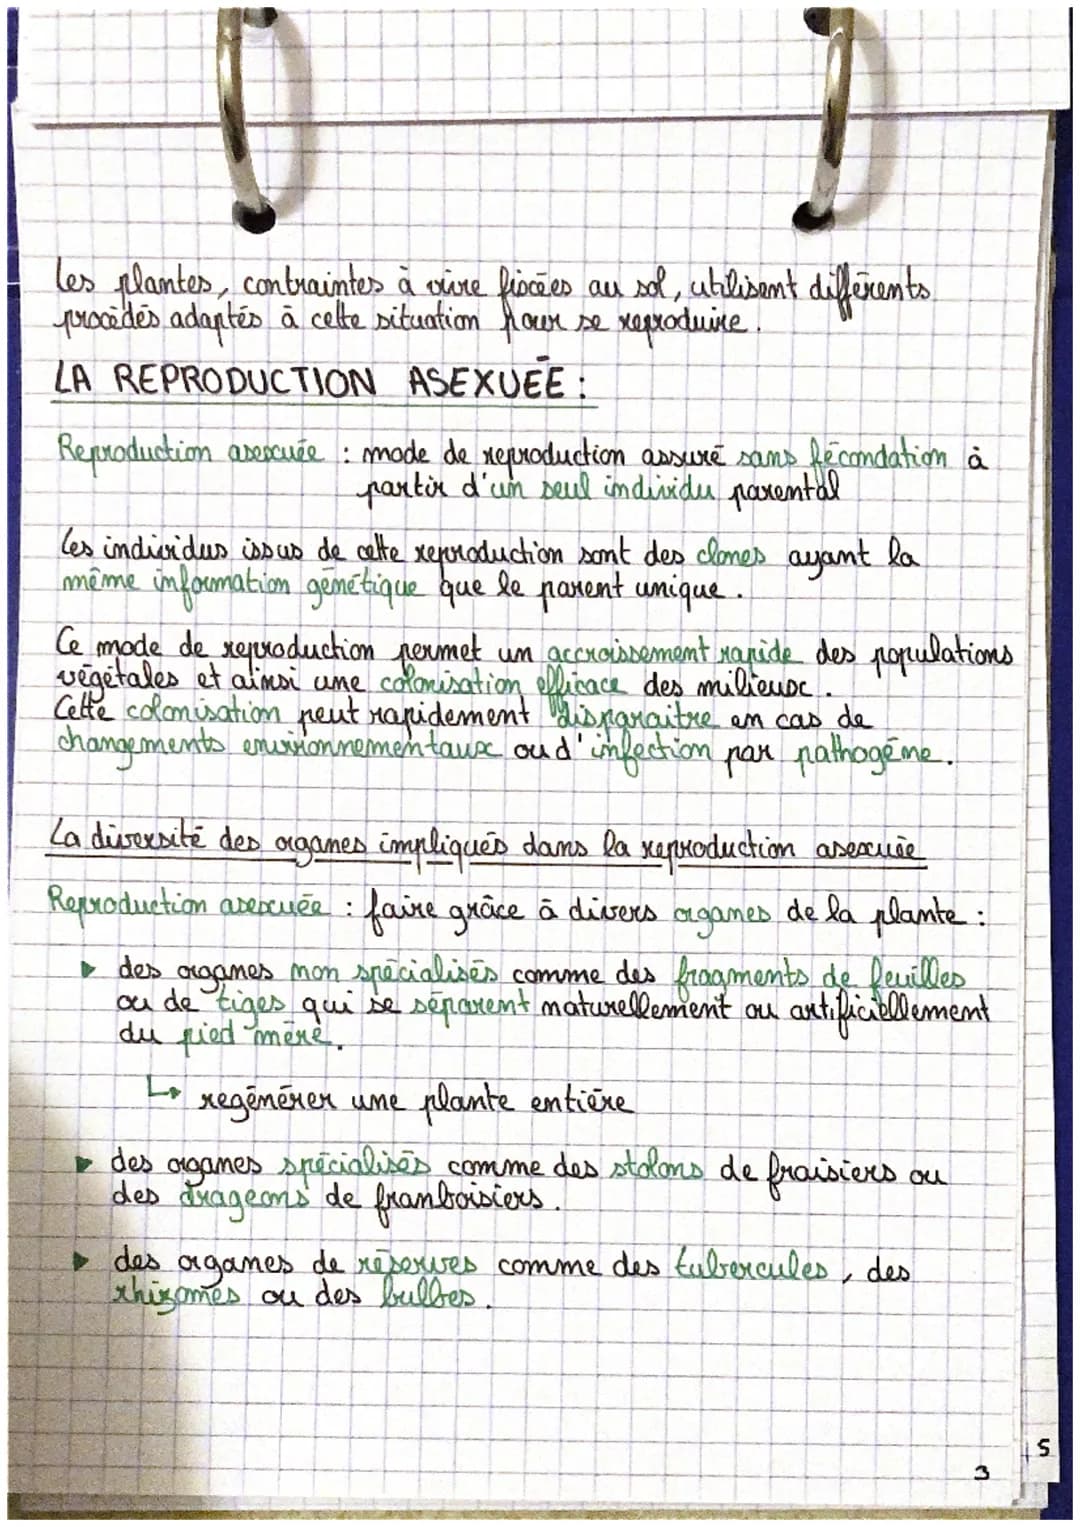 Les plantes, contraintes à vivre fixées au sol, utilisent différents
procédés adaptés à cette situation pour se reproduire.
LA REPRODUCTION ASEXUÉE :
Reproduction asexuée : mode de reproduction assuré sans fécondation à
partir d'un seul individu parental
Les individus issus de cette reproduction sont des clones ayant la
même information génétique que le parent unique.
Ce mode de reproduction permet un accroissement rapide des populations
végétales et ainsi une colonisation efficace des milieux.
Cette colonisation peut rapidement disparaitre en cas de
changements environnementaux ou d'infection par pathogène.
La diversité des organes impliqués dans la reproduction asexuée
Reproduction asexuée : faire grâce à divers organes de la plante :
▶ des organes non spécialisés comme des fragments de feuilles
ou de tiges qui se séparent naturellement ou artificiellement
du pied mère.
↳ regénérer une plante entière
▶ des organes spécialisés comme des stolons de fraisiers ou
des drageons de framboisiers.
▶ des organes de réserves comme des tubercules, des
rhizomes ou des bulbes.
5
3